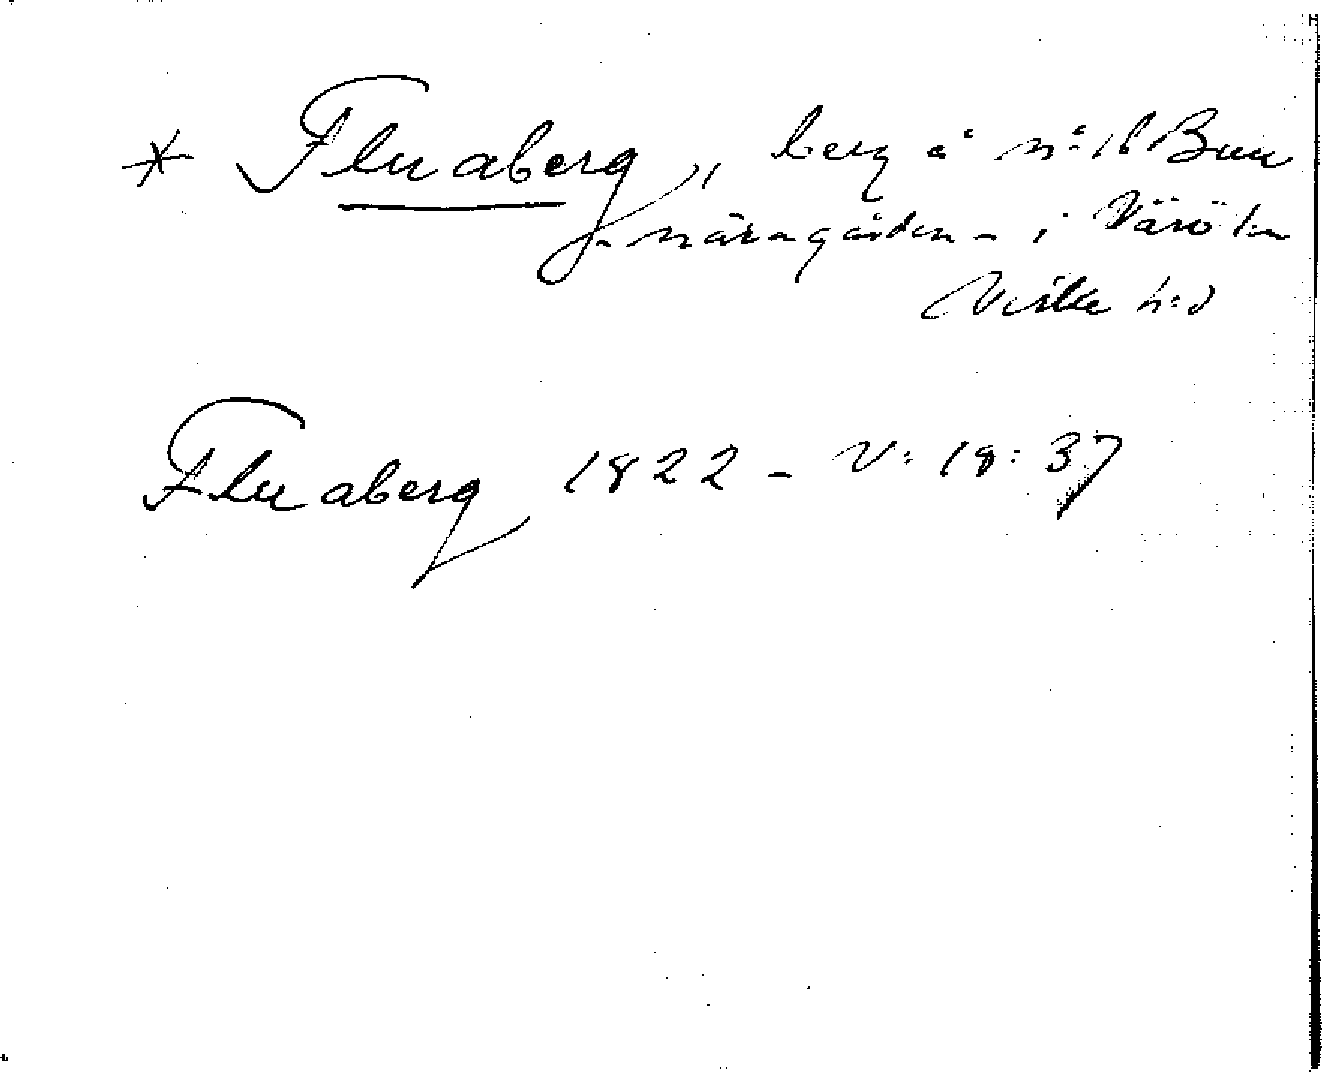 * Fluaberg, berg å n:o 16 Bua
- näragården - i Värö sn
Viske h:d
Fluaberg 1822 - V: 18: 37